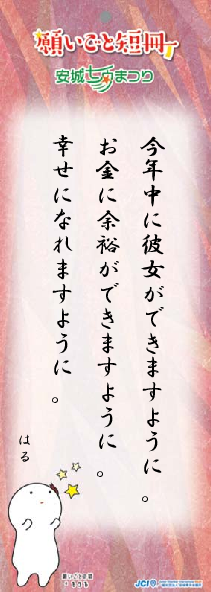 願いごと短冊
安城七夕まつり
今年中に彼女ができますように。
お金に余裕ができますように。
幸せになれますように。
はる
願いごとの妖精
きーぼー
JCI